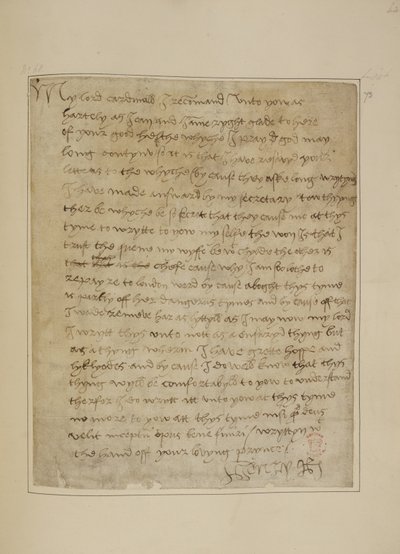 My lord cardinall I recomand unto yow as
hartely as I can and I ame ryght glade to here
of your good helthe whyche I pray god may
long contynwse it is that I have resavyd your
letteres to the whyche by cause they aske long wrytyng
I have made answard by my secretary tow thyngs
ther be whyche be so secrete that they cause me at thys
tyme to wrytte to yow my selfe the won is that I
trust the quene my wyfe be with chylde the other is
cheffe cause why I am so lothe to
repayre to london ward by cause abowght thys tyme
is partly off her dangerus tymes and by cause off that
I wold remeve har as lyttyll as I may now my lord
I wrytt thys unto nott as a ensuryd thyng but
as a thyng wherin I have grette hoppe and
lyklyodes and by cause I do well know that thys
thyng wyll be comfortabyll to yow to understand
therfor I do wrytt itt unto yow at thys tyme
no more to yow att thys tyme nisi quod deus
velit inceptum opus bene finiri wryttyn with
the hand off your lovyng prynce
Henry R